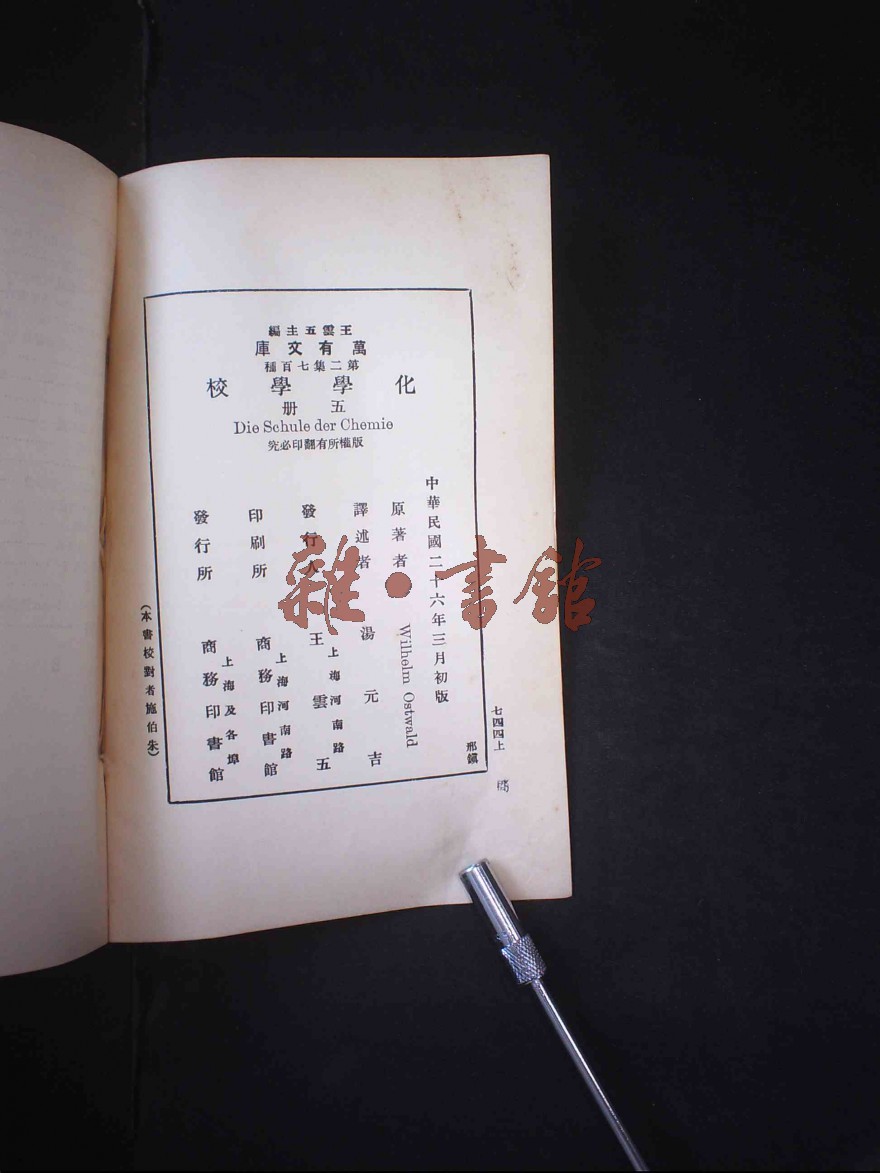 王雲五主編
萬有文庫
第二集七百種
化學學校
五册
Die Schule der Chemie
版權所有翻印必究
中華民國二十六年三月初版
原著者 Wilhelm Ostwald
譯述者 湯元吉
發行人 王雲五
上海河南路
印刷所 商務印書館
上海河南路
發行所 商務印書館
上海及各埠
(本書校對者施伯朱)
七四四上
邢鎭
雜·書館